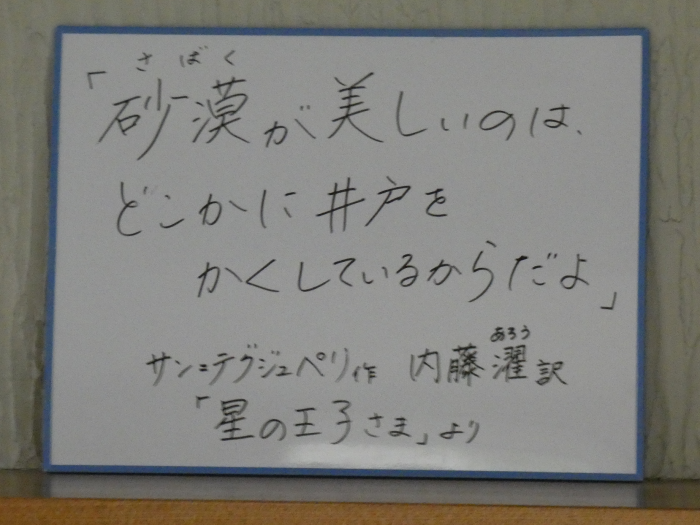 さばく
「砂漠が美しいのは、
どこかに井戸を
かくしているからだよ」
あろう
サン=テグジュペリ作 内藤濯訳
「星の王子さま」より